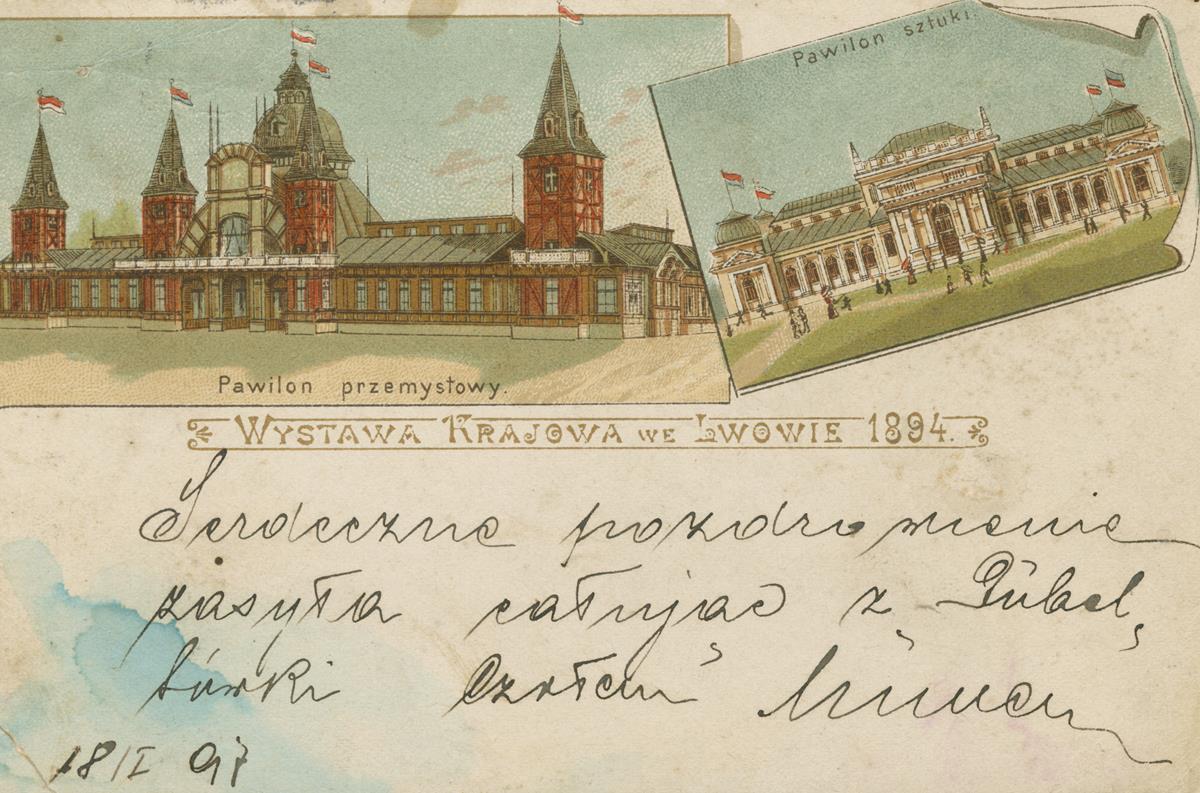 Pawilon sztuki.
Pawilon przemysłowy.
WYSTAWA KRAJOWA WE LWOWIE 1894.
Serdeczne pozdrowienie
zasyła całując z
Czołem
18/I 97